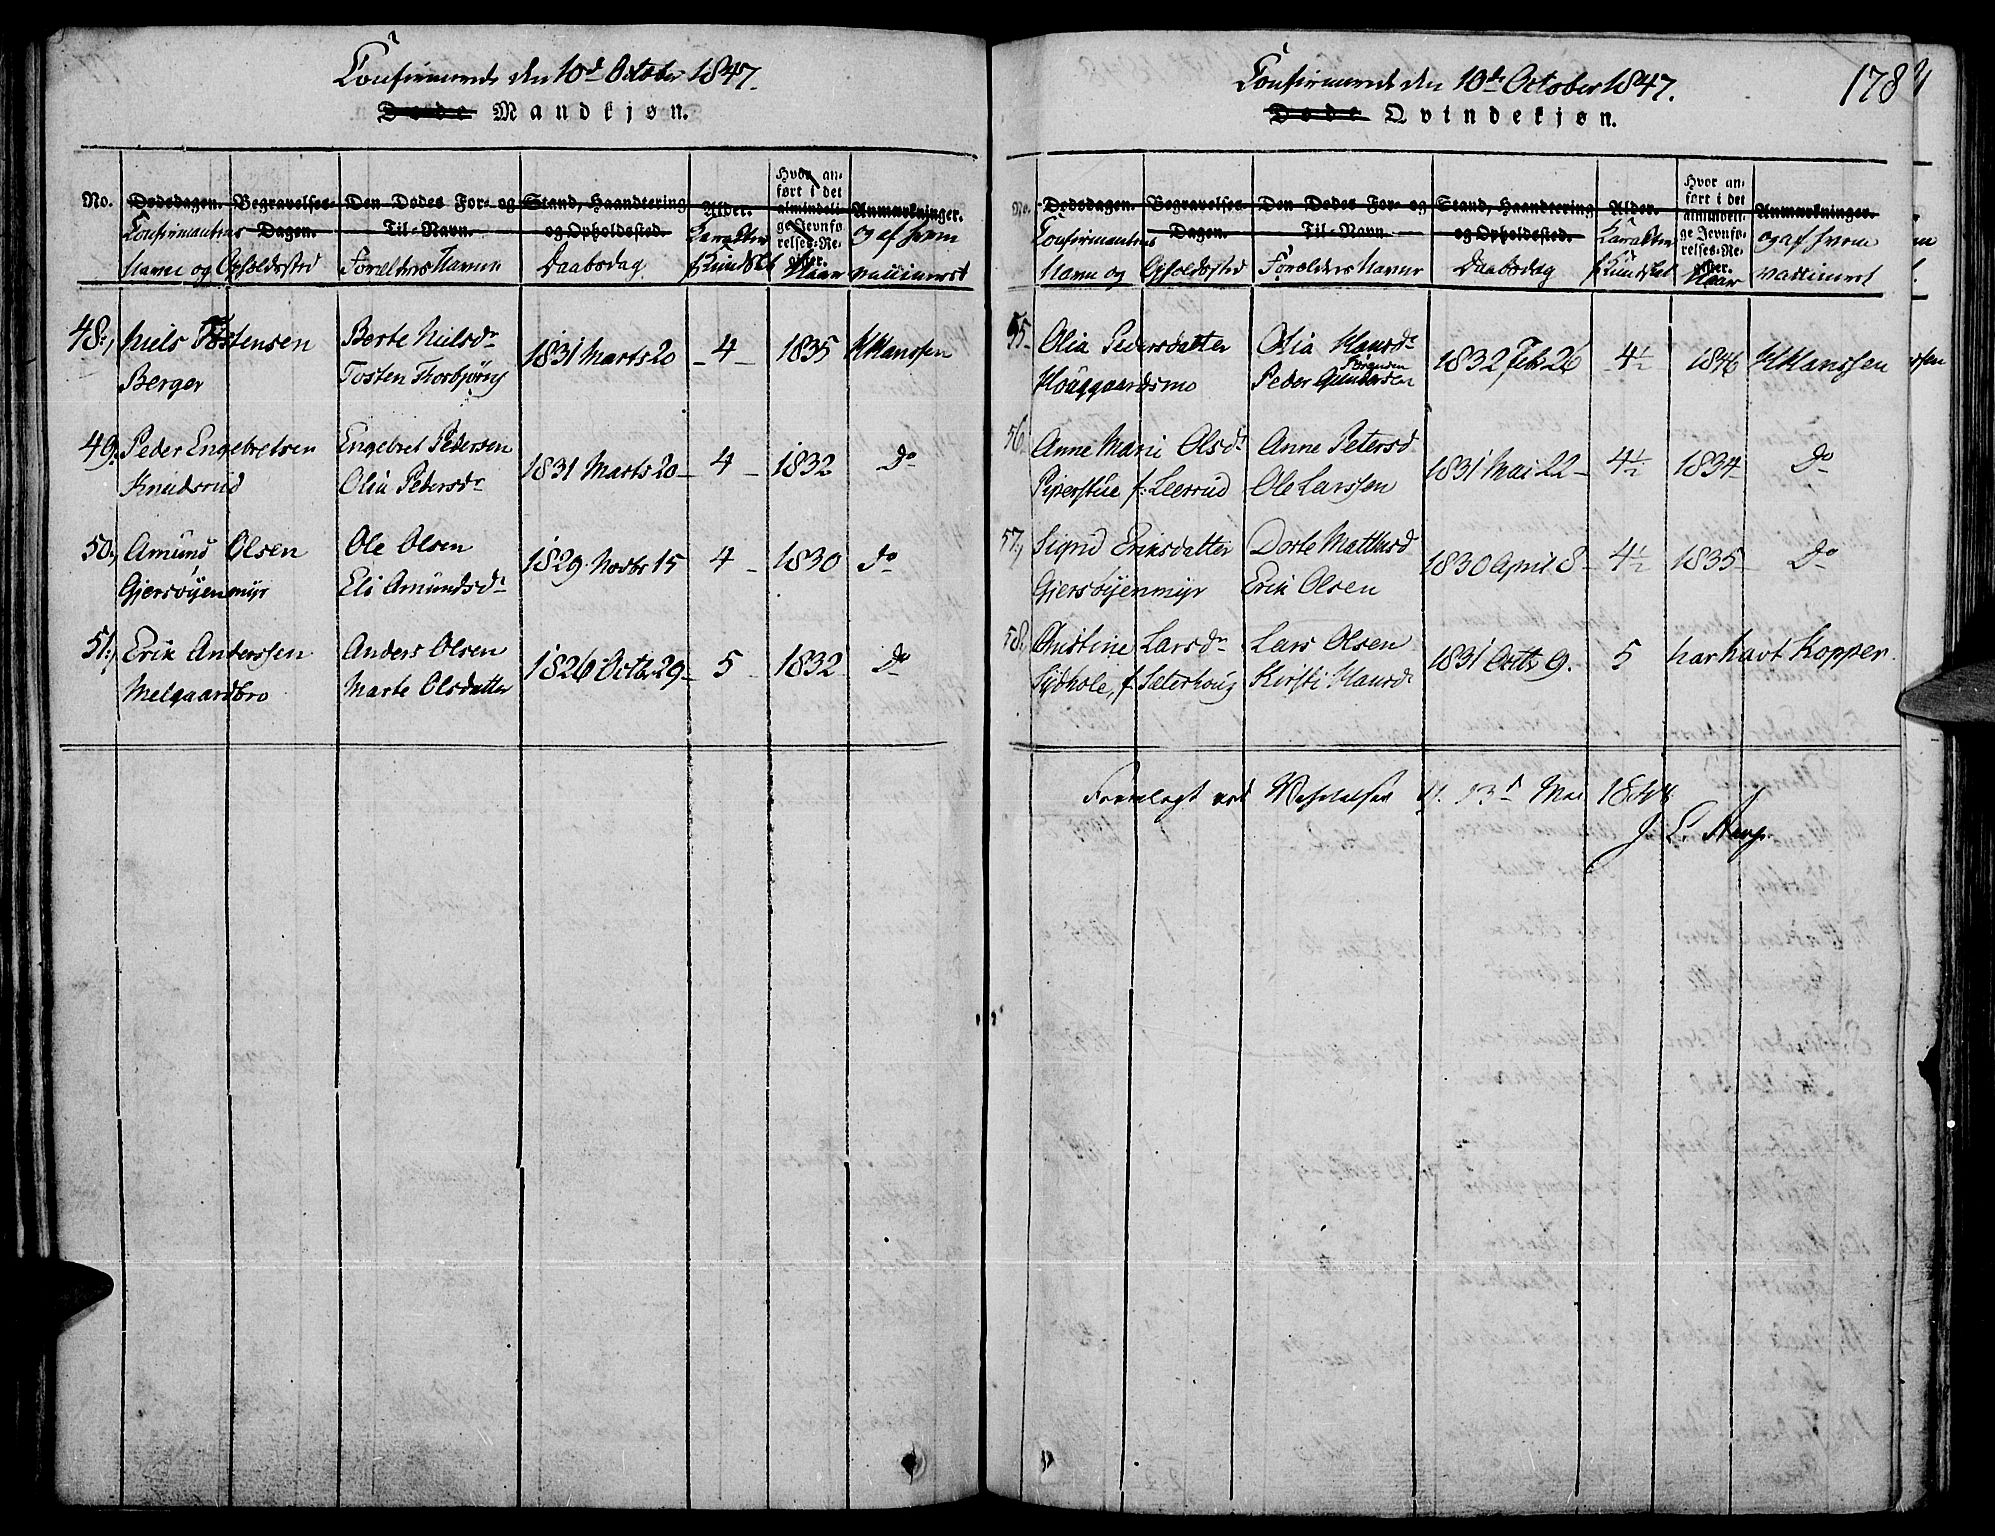 Confirmerede den 10de October 1847.
Døde Mandkjøn.
No. Dødsdagen. Begravelses-Dagen. Den Dødes For- og Til-Navn. Stand, Haandtering og Opholdssted. Alder. Hvor anført i det almindelige Jevnførelses-Register. Anmærkninger.
Confirmantens Navn og Opholdssted Forældrenes Navne Daabsdag Karakter f. Kundskab Naar og af hvem vaccineret
48, Niels Tostensen Berte Nielsdr 1831 Marts 20 - 4 - 1835 K Hanssen
Berger Tosten Thorbjørns
49. Peder Engebretsen Engebret Pedersen 1831 Marts 20 - 4 - 1832 Do
Knudsrud Olia Pedersdr
50, Amund Olsen Ole Olsen 1829. Novbr 15 4 - 1830 do
Gjersøyenmyr Eli Amundsdr
51, Erik Anderssen Anders Olsen 1826 Octbr 29 - 5 - 1832 Do
Melgaardbro Marte Olsdatter
Confirmerede den 10de October 1847.
178
Døde Qvindekjøn.
No. Dødsdagen. Begravelses-Dagen. Den Dødes For- og Til-Navn. Stand, Haandtering og Opholdssted. Alder. Hvor anført i det almindelige Jevnførelses-Register. Anmærkninger.
Confirmantens Navn og Opholdssted Forældrenes Navne Daabsdag Karakter f. Kundskab Naar og af hvem vaccineret
55. Olia Pedersdatter Olia Hansdr 1832 Feb 26 4½ 1846 K Hanssen
Houggaardsmo Peder Gundersen
56 Anne Marie Olsdr Anne Petersd 1831 Mai 22 - 4½ 1834 Do
Piperstue f. Leerud Ole Larssen
57, Sigrid Eriksdatter Dorte Matthisd 1830 April 8 - 4½ 1835 - Do
Gjersøyenmyr Erik Olsen
58, Christine Larsdr Lars Olsen 1831 Octbr 9. 5 har havt Kopper.
Sydhole, f. Sæterhoug Kirsti Hansdr
Fremlagt ved Visitatsen d. 13de Mai 1848
J. C. Aarp.